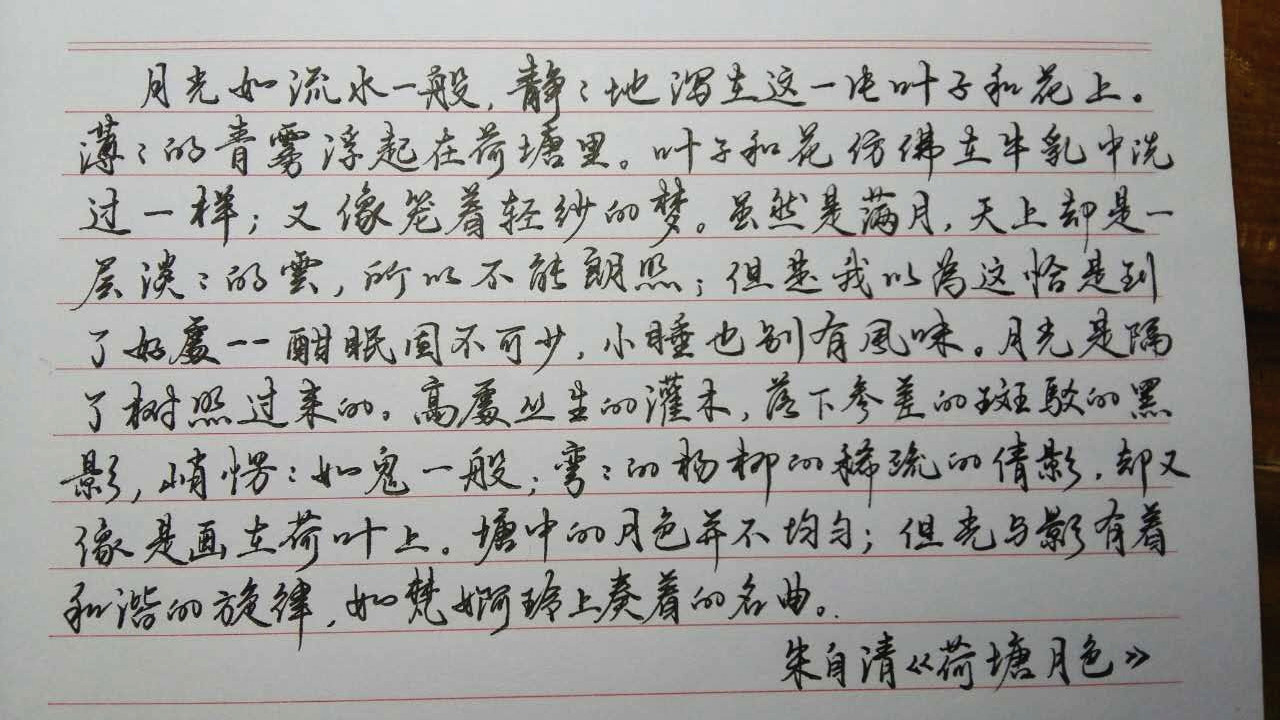 月光如流水一般，静々地泻在这一片叶子和花上。
薄々的青雾浮起在荷塘里。叶子和花仿佛在牛乳中洗
过一样；又像笼着轻纱的梦。虽然是满月，天上却是一
层淡々的雲，所以不能朗照；但是我以為这恰是到
了好處——酣眠固不可少，小睡也别有風味。月光是隔
了树照过来的，高處丛生的灌木，落下参差的斑驳的黑
影，峭愣々如鬼一般；弯々的杨柳的稀疏的倩影，却又
像是画在荷叶上。塘中的月色并不均匀；但光与影有着
和谐的旋律，如梵婀玲上奏着的名曲。
朱自清《荷塘月色》